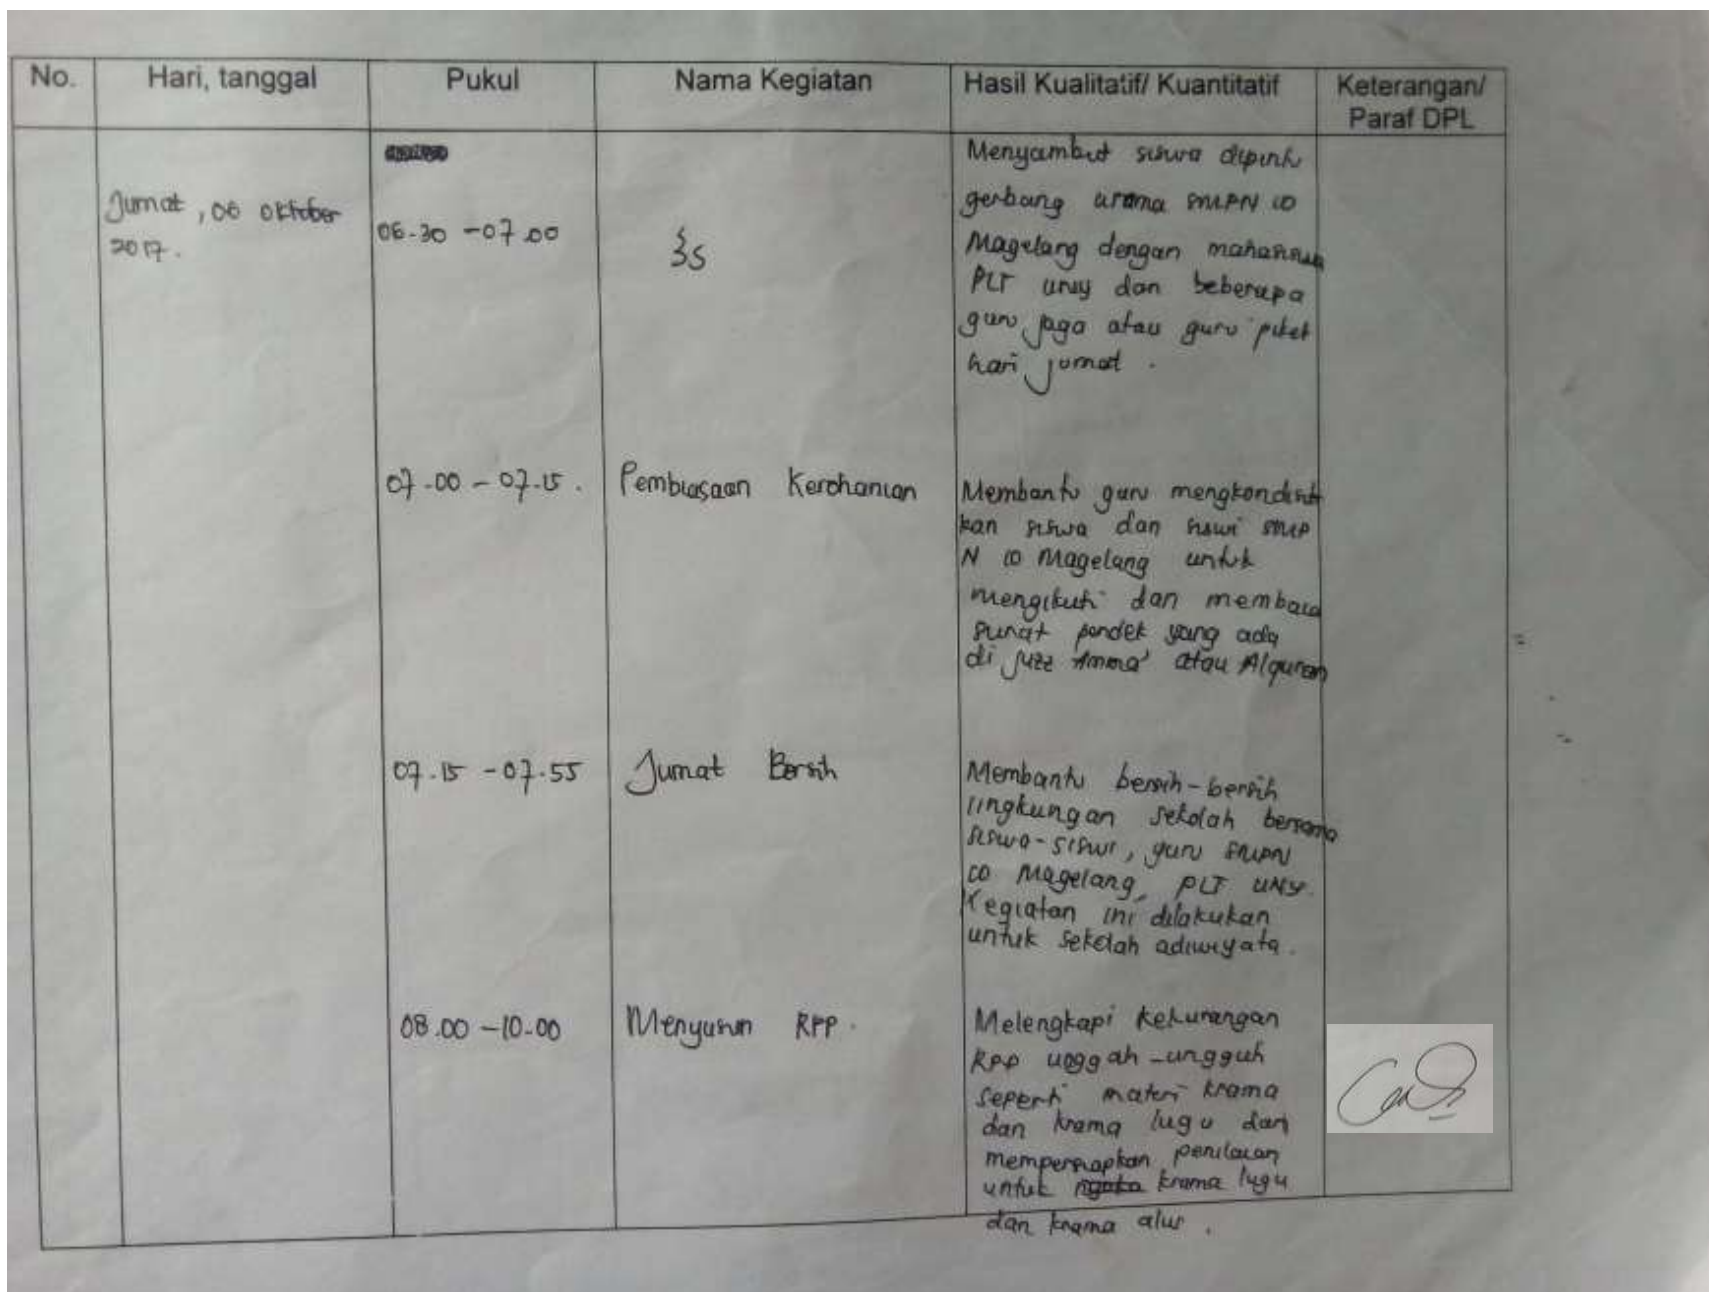 No.
Hari, tanggal
Pukul
Nama Kegiatan
Hasil Kualitatif/ Kuantitatif
Keterangan/
Paraf DPL
Jumat, 06 Oktober
2017.
06.30 - 07.00
3S
Menyambut siswa dipintu
gerbang utama SMPN 10
Magelang dengan mahasiswa
PLT UNY dan beberapa
guru jaga atau guru piket
hari jumat.
07.00 - 07.15.
Pembiasaan Kerohanian
Membantu guru mengkondisi
kan siswa dan siswi SMP
N 10 Magelang untuk
mengikuti dan membaca
surat pendek yang ada
di Juzz Amma' atau Alquran
07.15 - 07.55
Jumat Bersih
Membantu bersih-bersih
lingkungan sekolah bersama
siswa-siswi, guru SMPN
10 Magelang, PLT UNY.
Kegiatan ini dilakukan
untuk sekolah adiwiyata.
08.00 - 10.00
Menyusun RPP.
Melengkapi kekurangan
RPP unggah-ungguh
seperti materi krama
dan krama lugu dan
mempersiapkan penilaian
untuk krama lugu
dan krama alus.